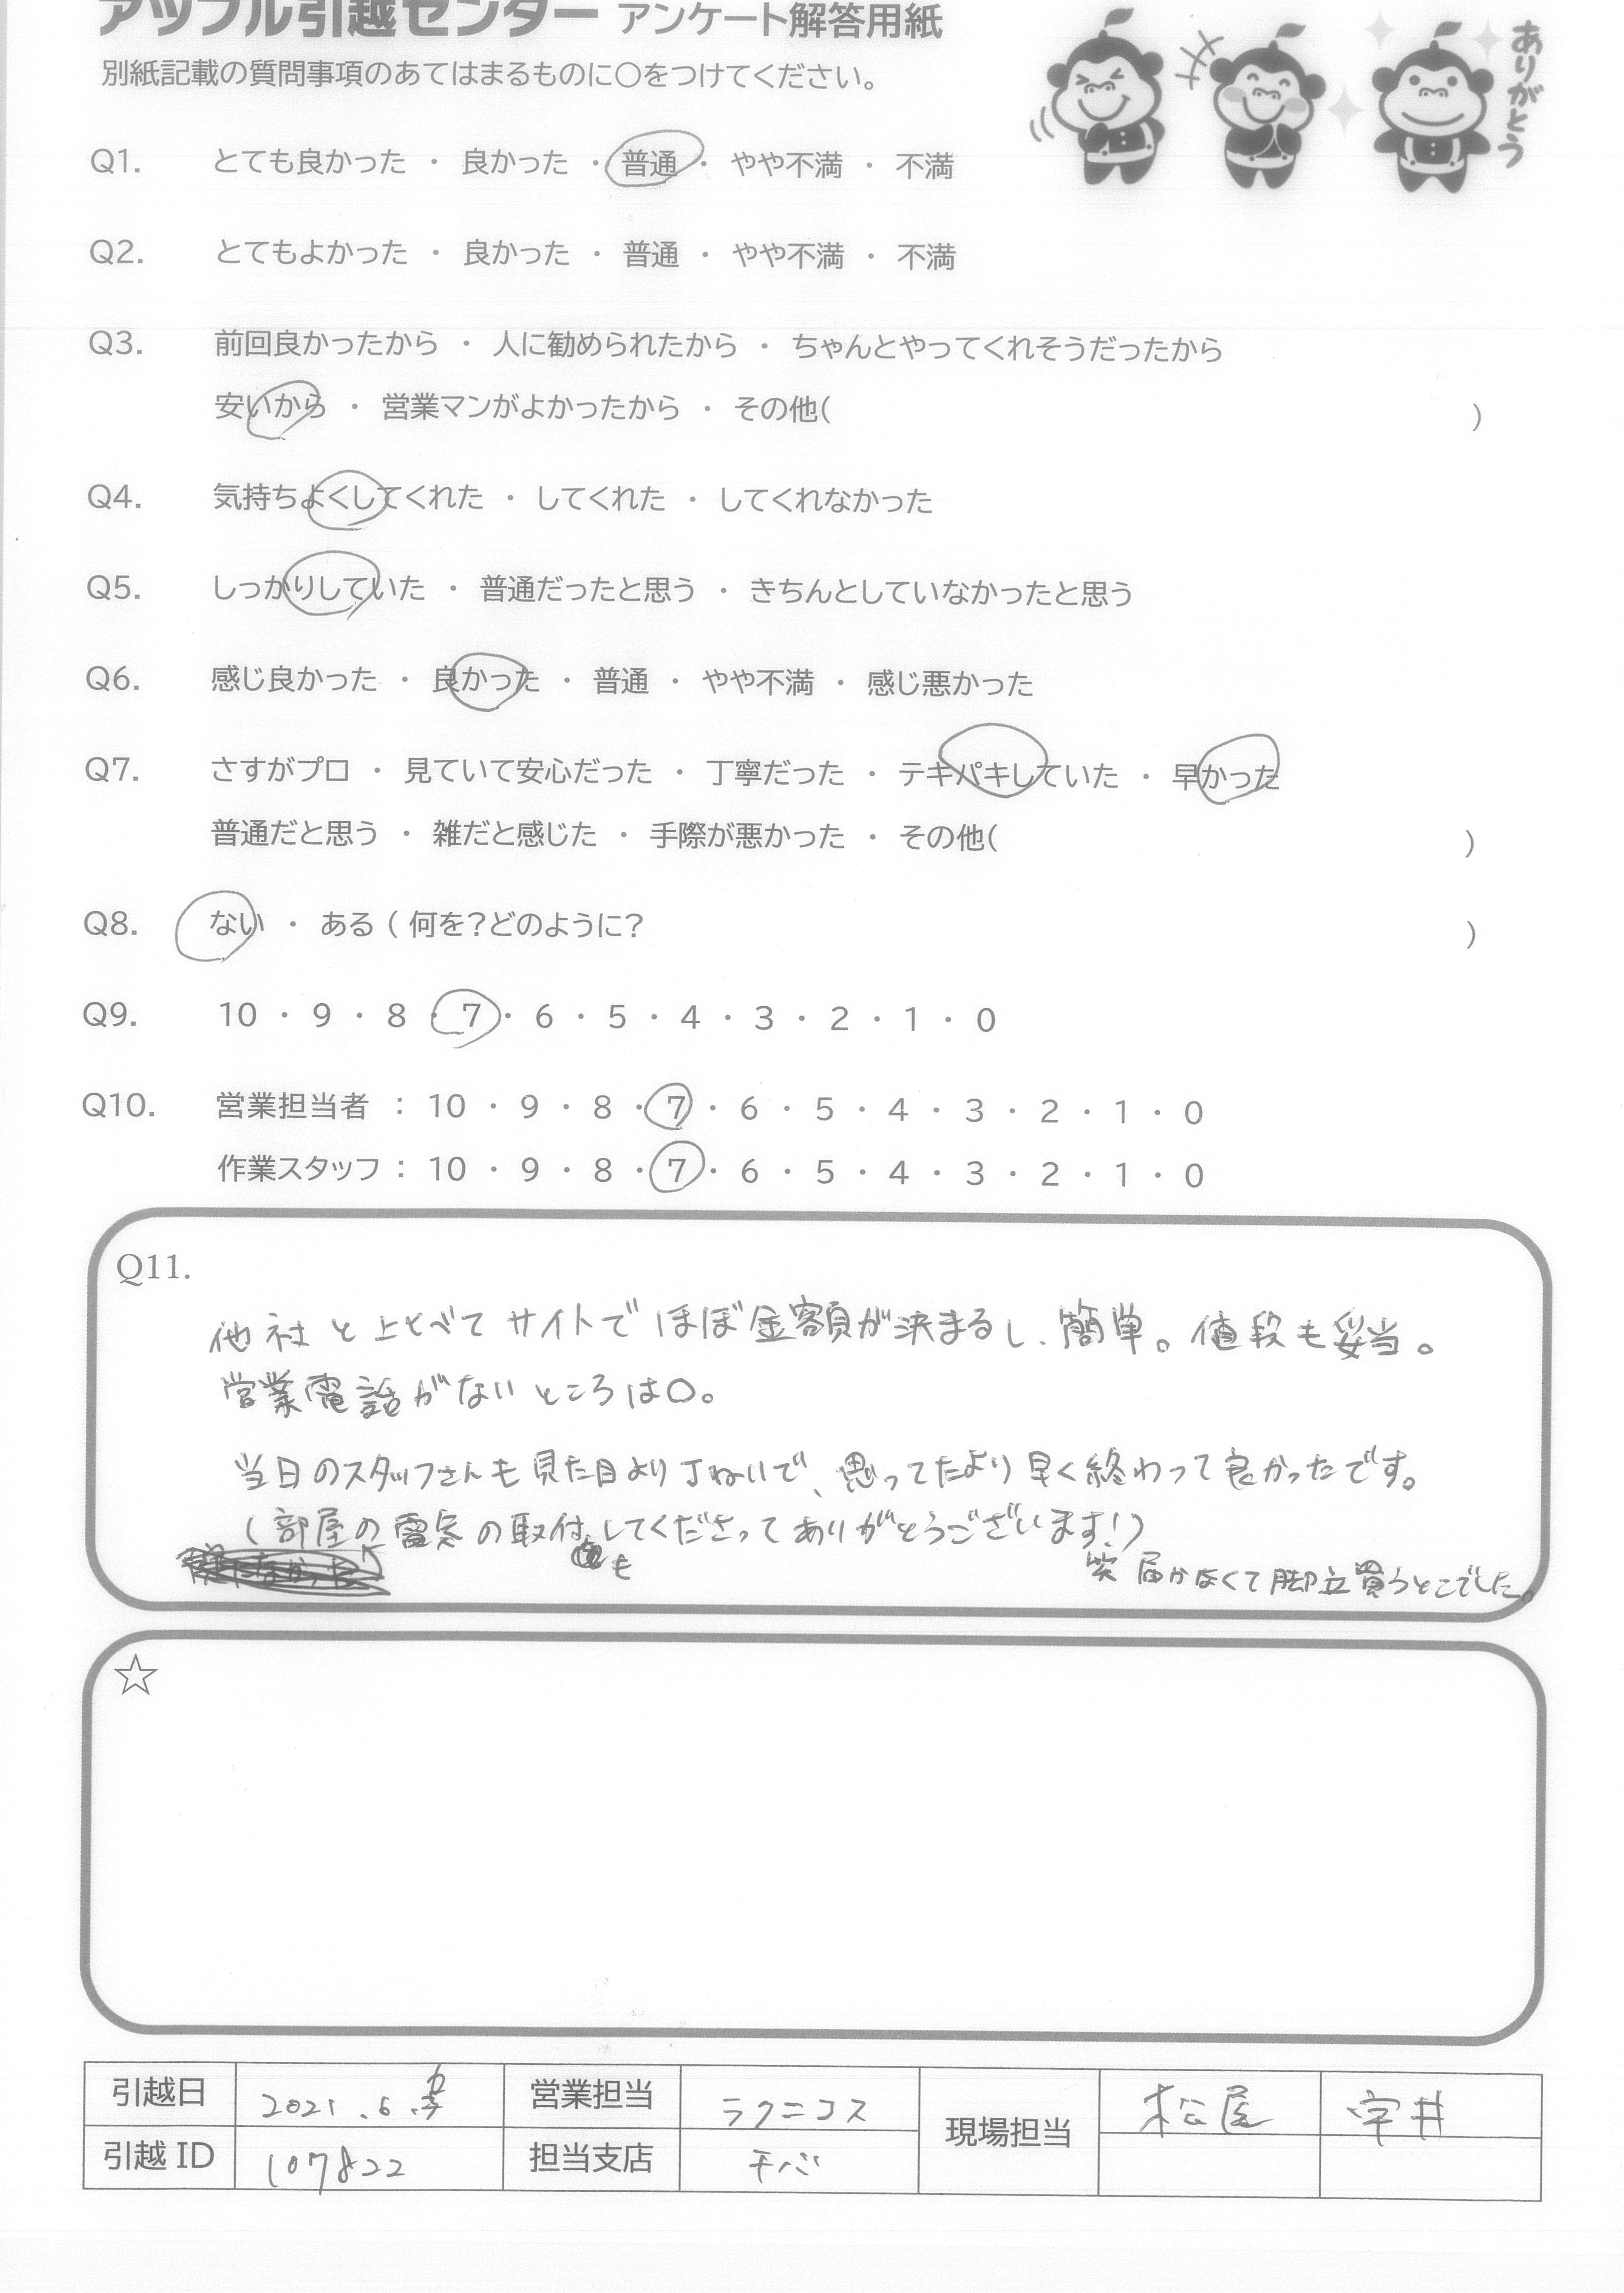 アップル引越センター アンケート解答用紙
別紙記載の質問事項のあてはまるものに○をつけてください。
ありがとう
Q1. とても良かった ・ 良かった ・ 普通 ・ やや不満 ・ 不満
Q2. とてもよかった ・ 良かった ・ 普通 ・ やや不満 ・ 不満
Q3. 前回良かったから ・ 人に勧められたから ・ ちゃんとやってくれそうだったから
安いから ・ 営業マンがよかったから ・ その他( )
Q4. 気持ちよくしてくれた ・ してくれた ・ してくれなかった
Q5. しっかりしていた ・ 普通だったと思う ・ きちんとしていなかったと思う
Q6. 感じ良かった ・ 良かった ・ 普通 ・ やや不満 ・ 感じ悪かった
Q7. さすがプロ ・ 見ていて安心だった ・ 丁寧だった ・ テキパキしていた ・ 早かった
普通だと思う ・ 雑だと感じた ・ 手際が悪かった ・ その他( )
Q8. ない ・ ある ( 何を?どのように? )
Q9. 10 ・ 9 ・ 8 ・ 7 ・ 6 ・ 5 ・ 4 ・ 3 ・ 2 ・ 1 ・ 0
Q10. 営業担当者 : 10 ・ 9 ・ 8 ・ 7 ・ 6 ・ 5 ・ 4 ・ 3 ・ 2 ・ 1 ・ 0
作業スタッフ : 10 ・ 9 ・ 8 ・ 7 ・ 6 ・ 5 ・ 4 ・ 3 ・ 2 ・ 1 ・ 0
Q11.
他社と比べてサイトでほぼ金額が決まるし、簡単。値段も妥当。
営業電話がないところは○。
当日のスタッフさんも見た目より丁ねいで、思ってたより早く終わって良かったです。
(部屋の電気の取付もしてくださってありがとうございます!)
笑 届かなくて脚立買うとこでした。
☆
引越日 2021.6. 営業担当 ラクニコス 現場担当 松尾 宇井
引越ID 107822 担当支店 千バ